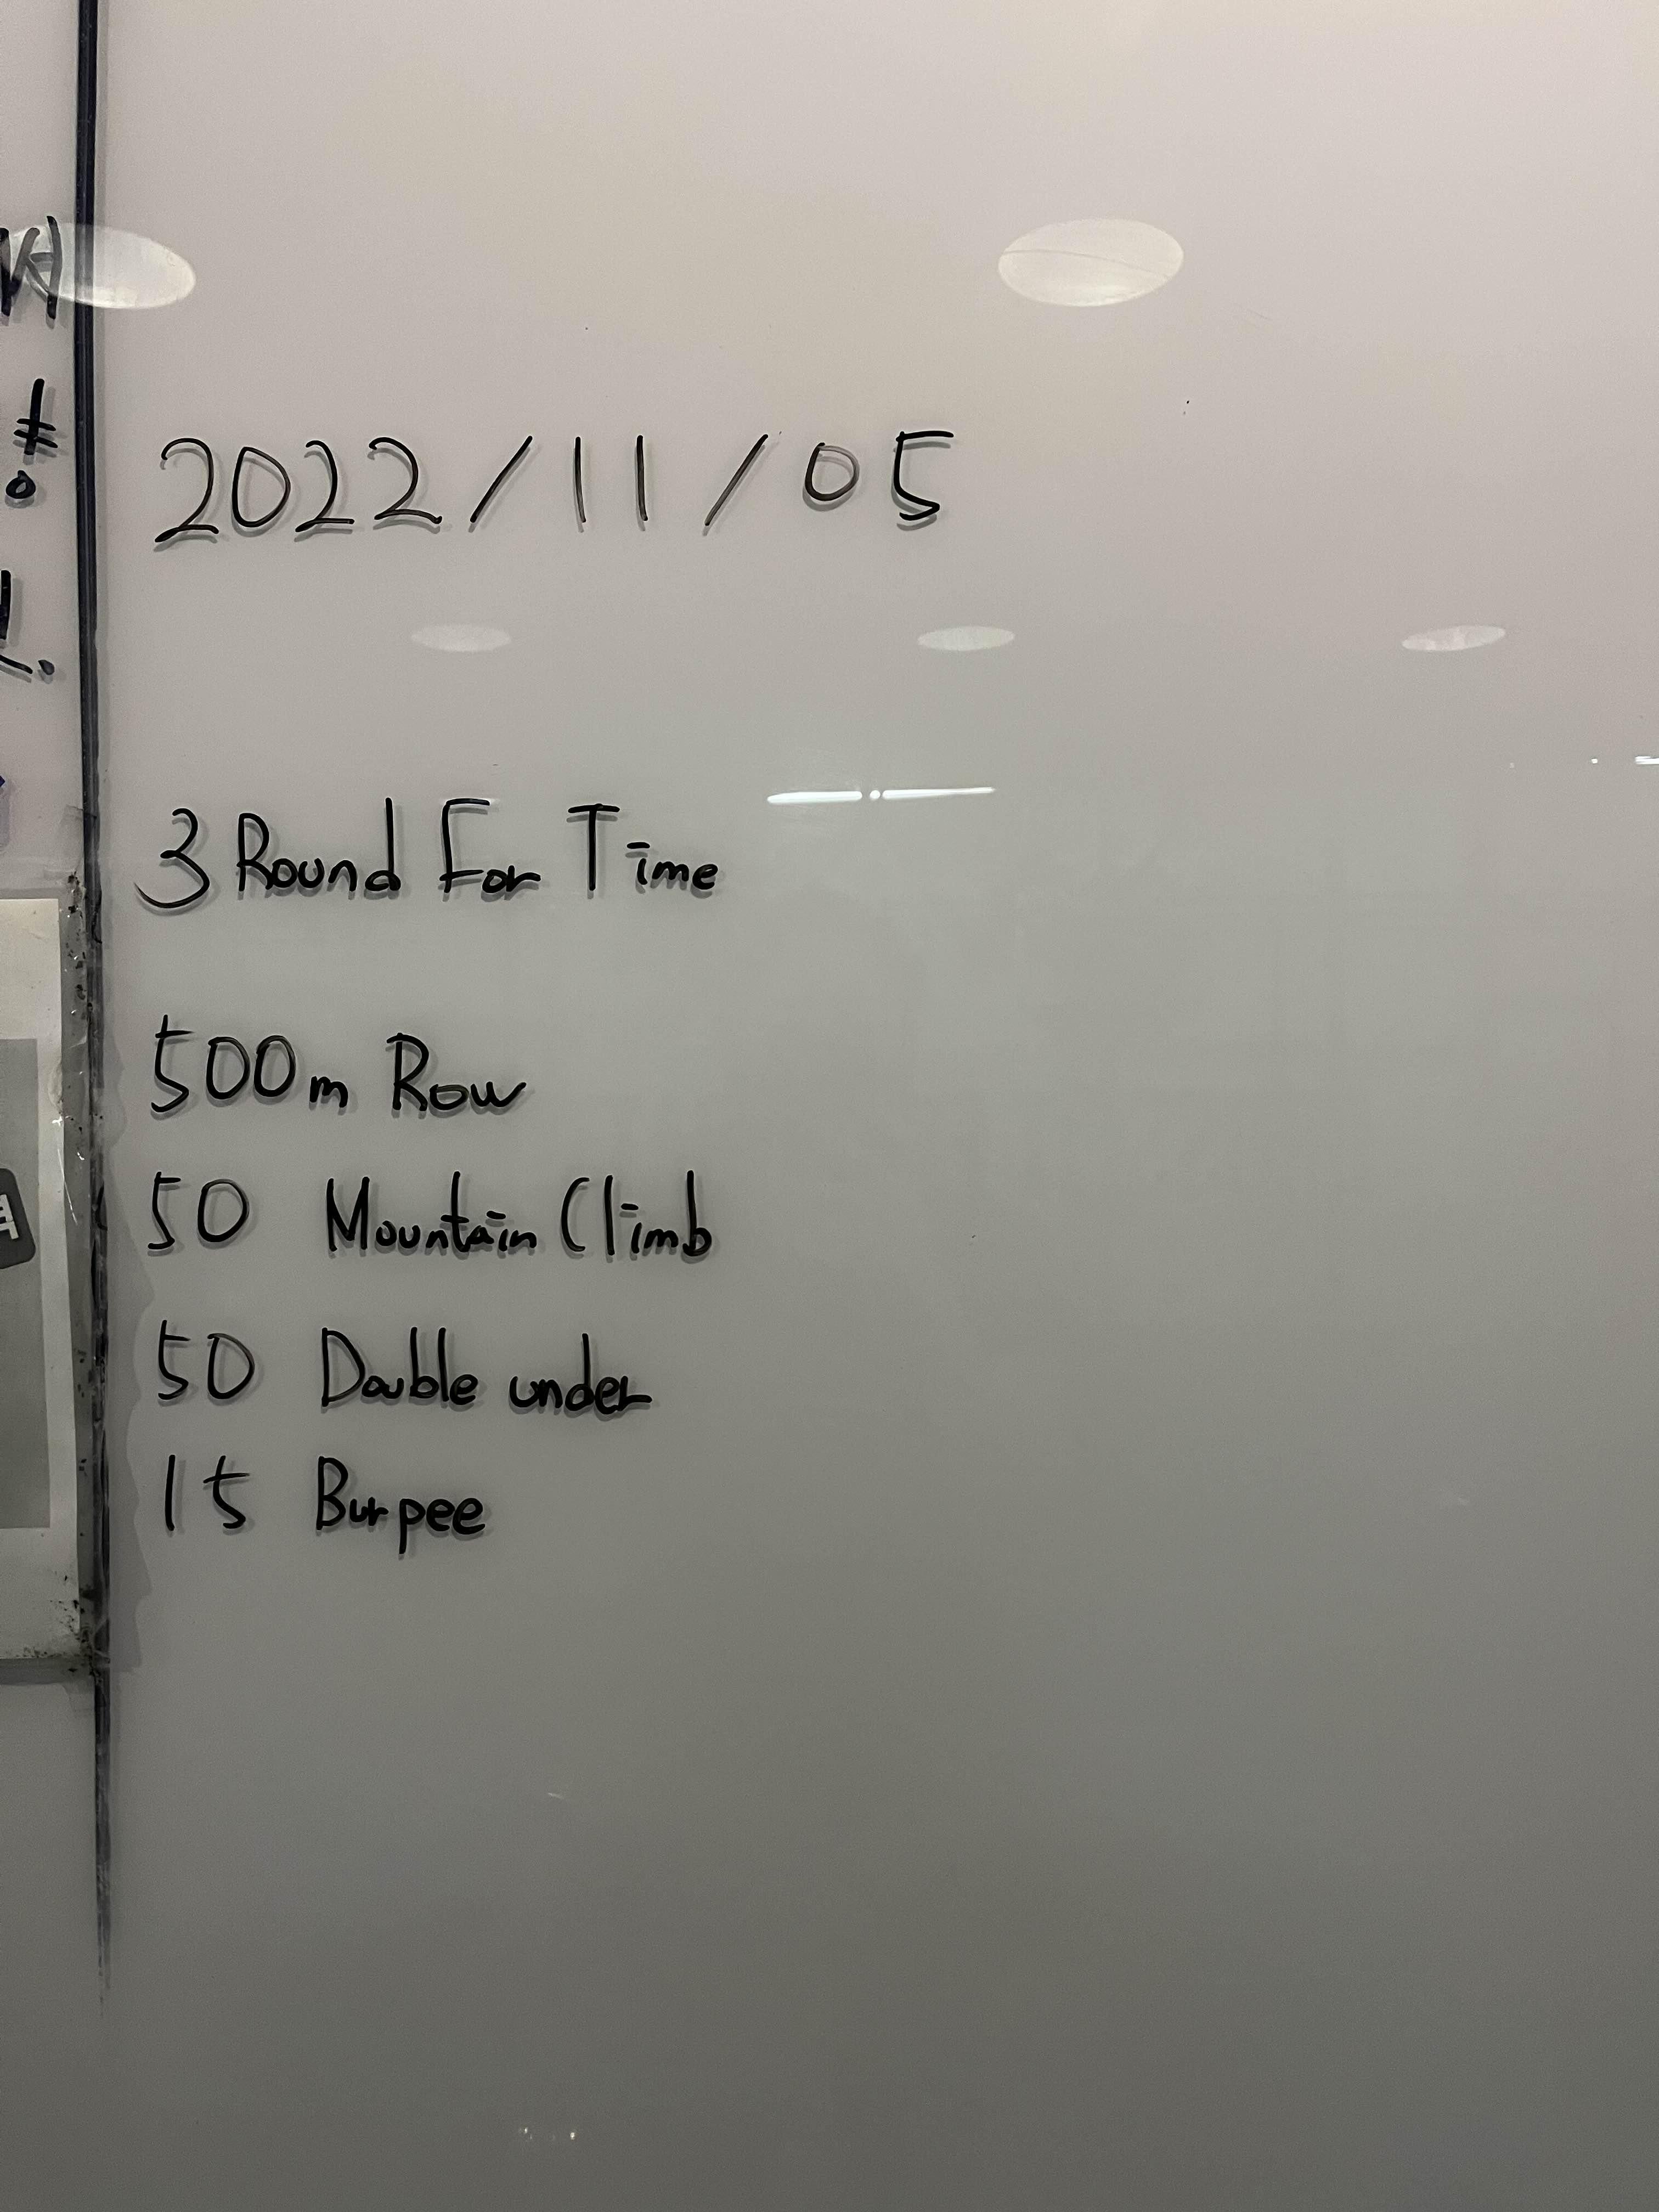 2022/11/05
3 Round For Time
500m Row
50 Mountain Climb
50 Double under
15 Burpee